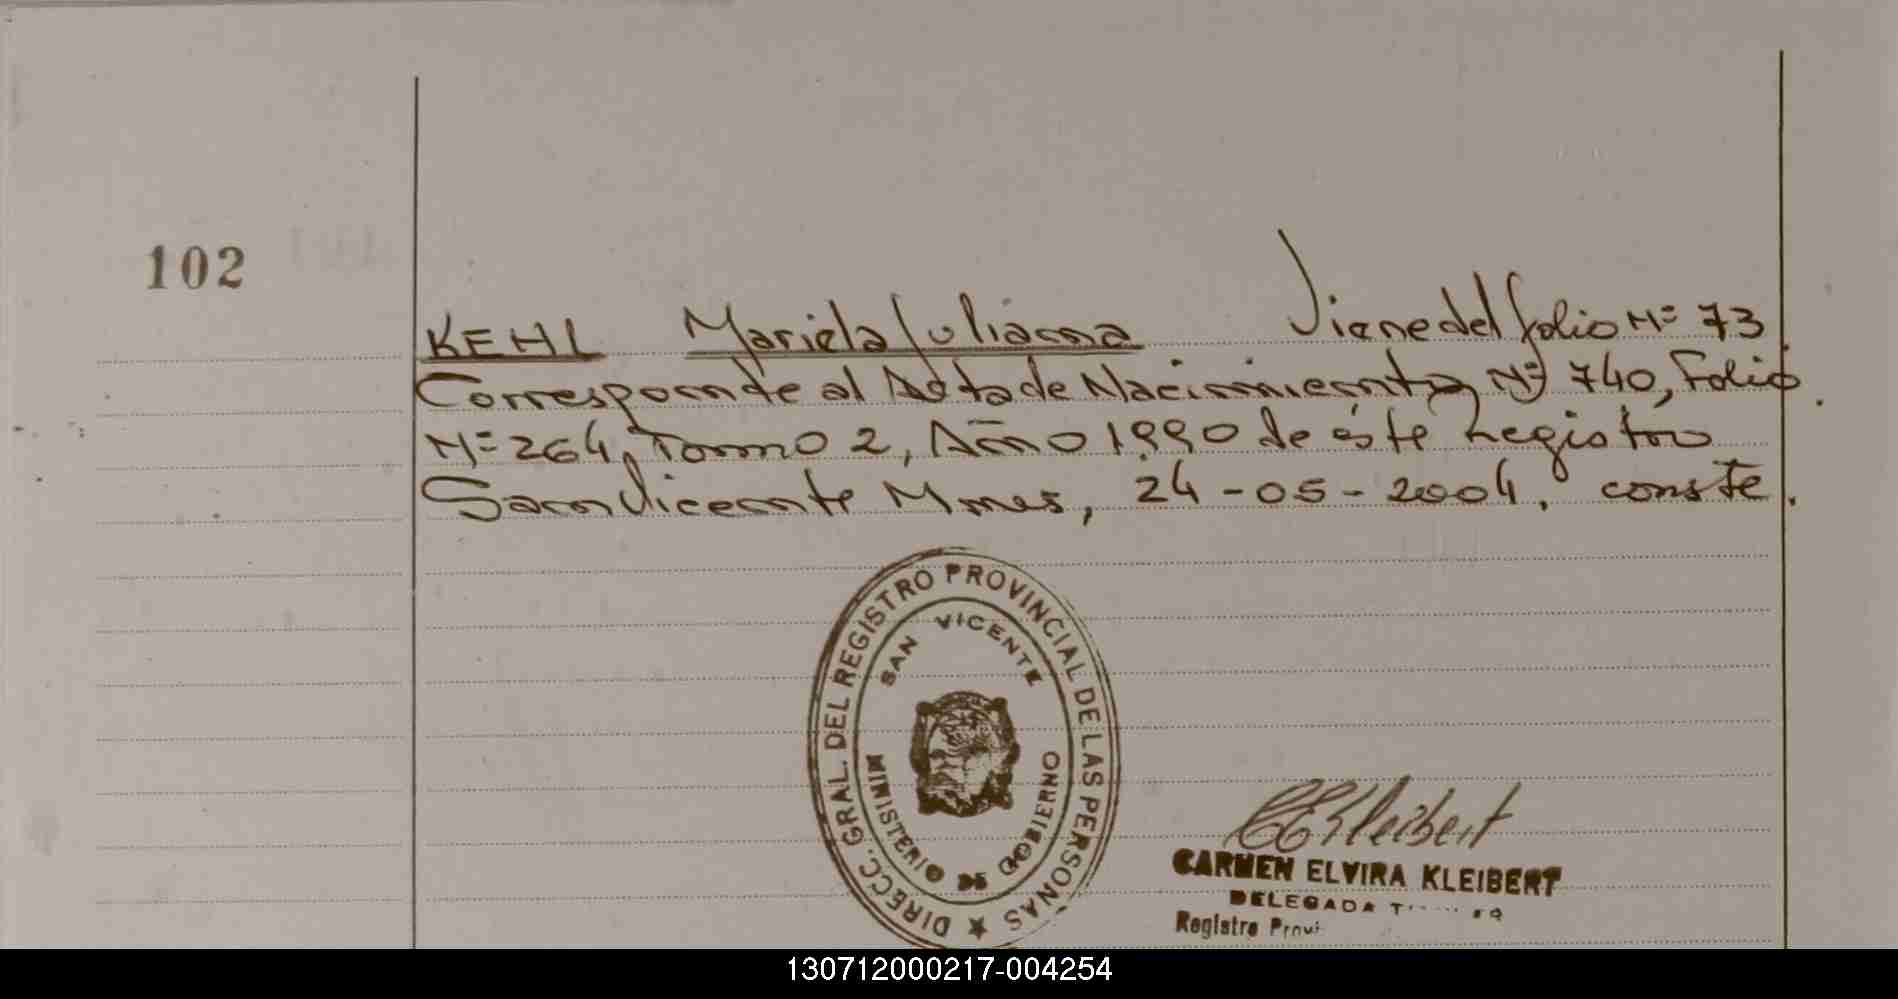 102
KEHL Mariela Juliana Viene del folio Nº 73
Corresponde al Acta de Nacimiento Nº 740, Folio
Nº 264, Tomo 2, Año 1990 de éste Registro
San Vicente Mnes, 24-05-2004. conste.
DIRECC. GRAL. DEL REGISTRO PROVINCIAL DE LAS PERSONAS
SAN VICENTE
MINISTERIO DE GOBIERNO
CEKleibert
CARMEN ELVIRA KLEIBERT
DELEGADA
Registro
130712000217-004254